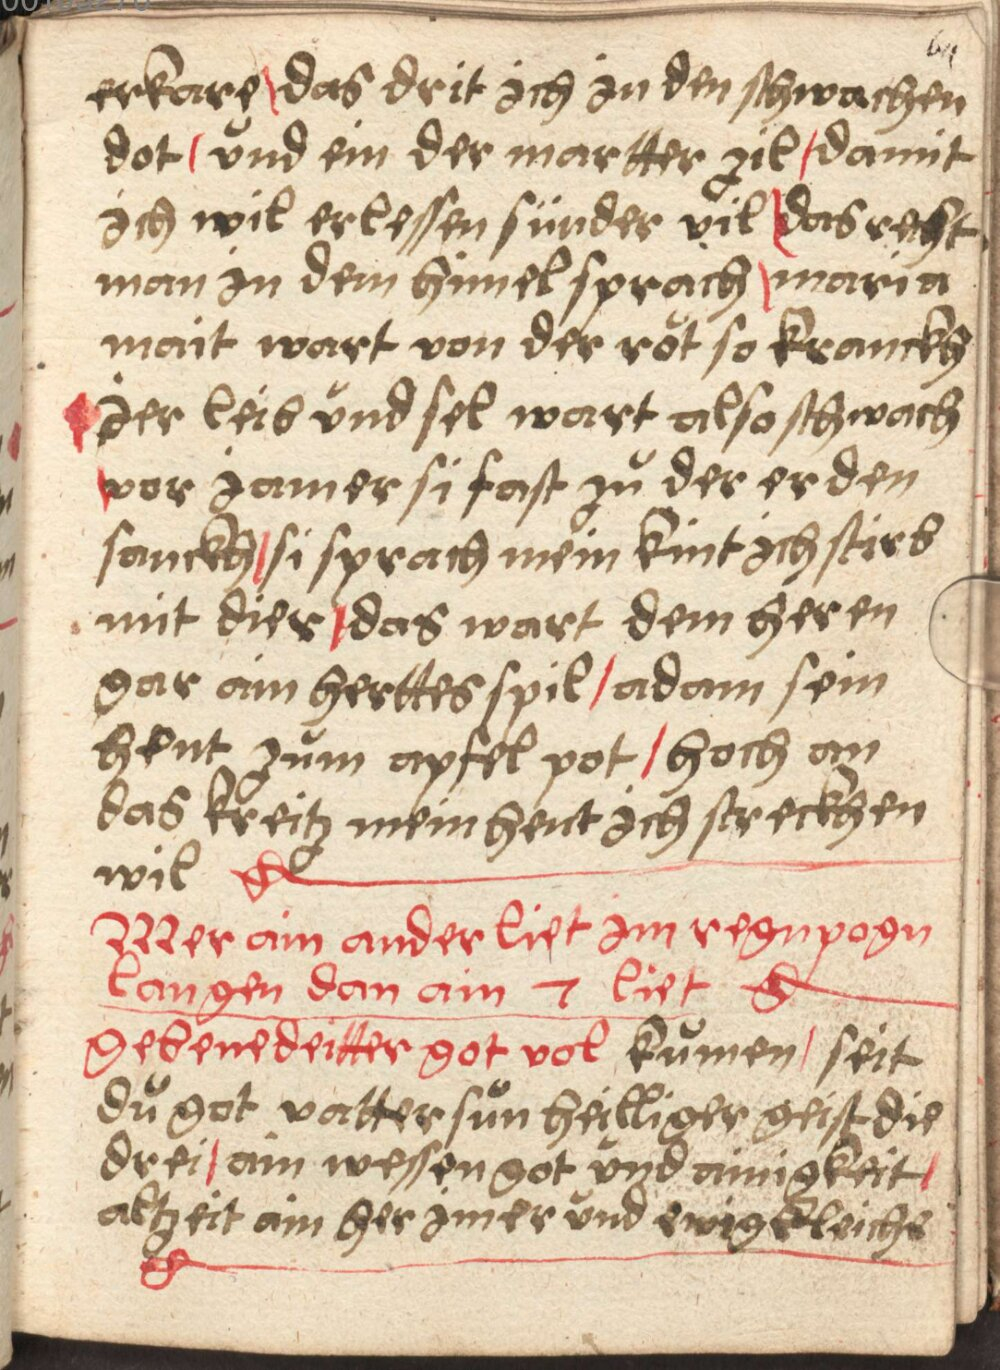 erkare / das drit ich in den schwachen
dot / vnd ein der martter zil / damit
ich wil erlessen sünder vil / das recht
man in dem himel sprach / maria
mait wart von der rot so kranckh
Ier leib vnd sel wart also schwach
vor jamer si fast zu der erden
sanckh / si sprach mein kint ich stirb
mit dier / das wart dem heren
gar ain herttes spil / adam sein
hent zum apfel pot / hoch an
das kreitz mein hent ich streckhen
wil
Mer ain ander liet im regnpogn
langen dan ain 7 liet
Gebenedeitter got vol kumen / seit
du got vatter sun heilliger geist die
drei / ain wessen got vnd ainigkeit /
altzeit ain her imer vnd ewigkleiche